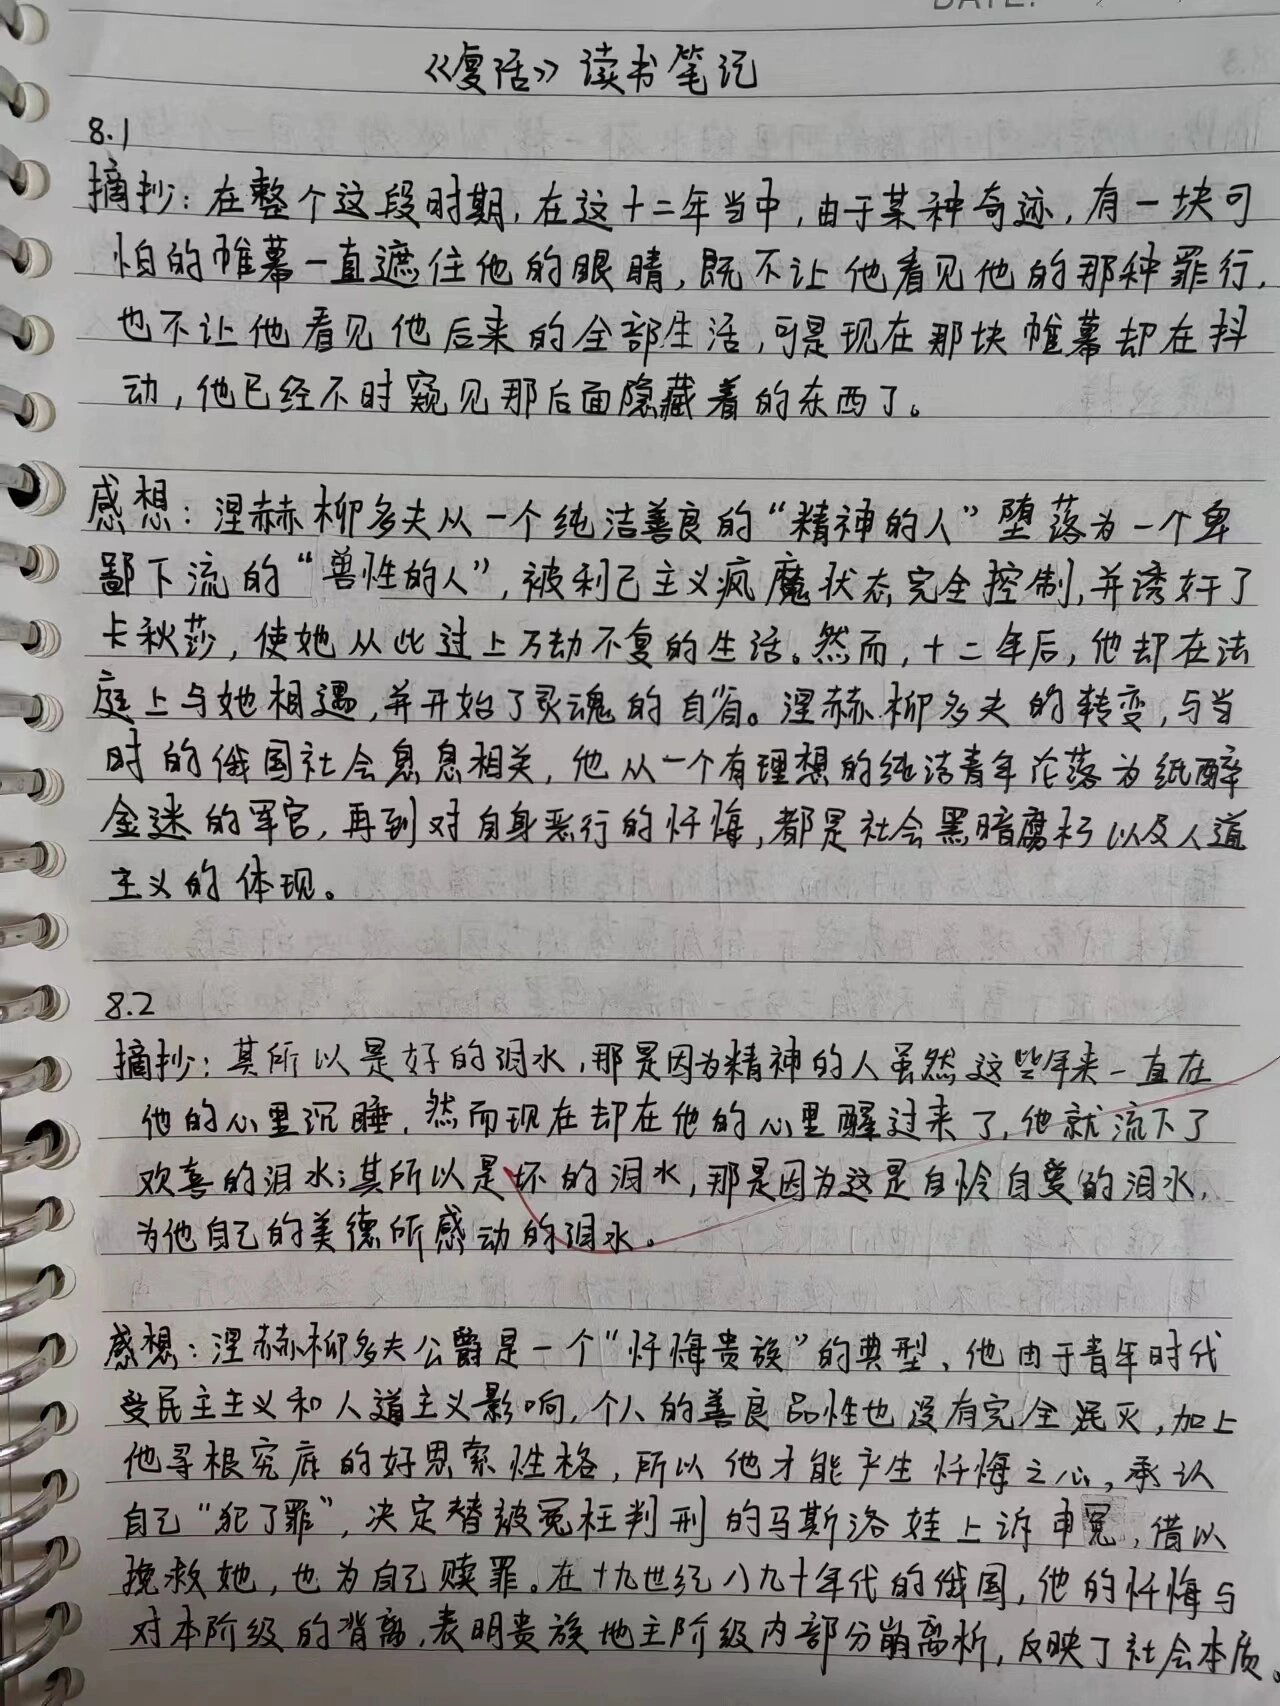 DATE:
《复活》读书笔记
8.1
摘抄：在整个这段时期，在这十二年当中，由于某种奇迹，有一块可
怕的帷幕一直遮住他的眼睛，既不让他看见他的那种罪行，
也不让他看见他后来的全部生活，可是现在那块帷幕却在抖
动，他已经不时窥见那后面隐藏着的东西了。
感想：涅赫柳多夫从一个纯洁善良的“精神的人”堕落为一个卑
鄙下流的“兽性的人”，被利己主义疯魔状态完全控制，并诱奸了
卡秋莎，使她从此过上万劫不复的生活。然而，十二年后，他却在法
庭上与她相遇，并开始了灵魂的自省。涅赫柳多夫的转变，与当
时的俄国社会息息相关，他从一个有理想的纯洁青年沦落为纸醉
金迷的军官，再到对自身恶行的忏悔，都是社会黑暗腐朽以及人道
主义的体现。
8.2
摘抄：其所以是好的泪水，那是因为精神的人虽然这些年来一直在
他的心里沉睡，然而现在却在他的心里醒过来了，他就流下了
欢喜的泪水；其所以是坏的泪水，那是因为这是自怜自爱的泪水，
为他自己的美德所感动的泪水。
感想：涅赫柳多夫公爵是一个“忏悔贵族”的典型，他由于青年时代
受民主主义和人道主义影响，个人的善良品性也没有完全泯灭，加上
他寻根究底的好思索性格，所以他才能产生忏悔之心，承认
自己“犯了罪”，决定替被冤枉判刑的马斯洛娃上诉申冤，借以
挽救她，也为自己赎罪。在十九世纪八九十年代的俄国，他的忏悔与
对本阶级的背离，表明贵族地主阶级内部分崩离析，反映了社会本质。